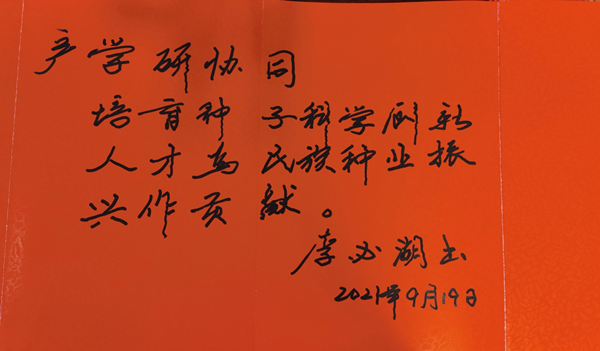 产学研协同
培育种子科学创新
人才为民族种业振
兴作贡献。
李必湖书
2021年9月19日